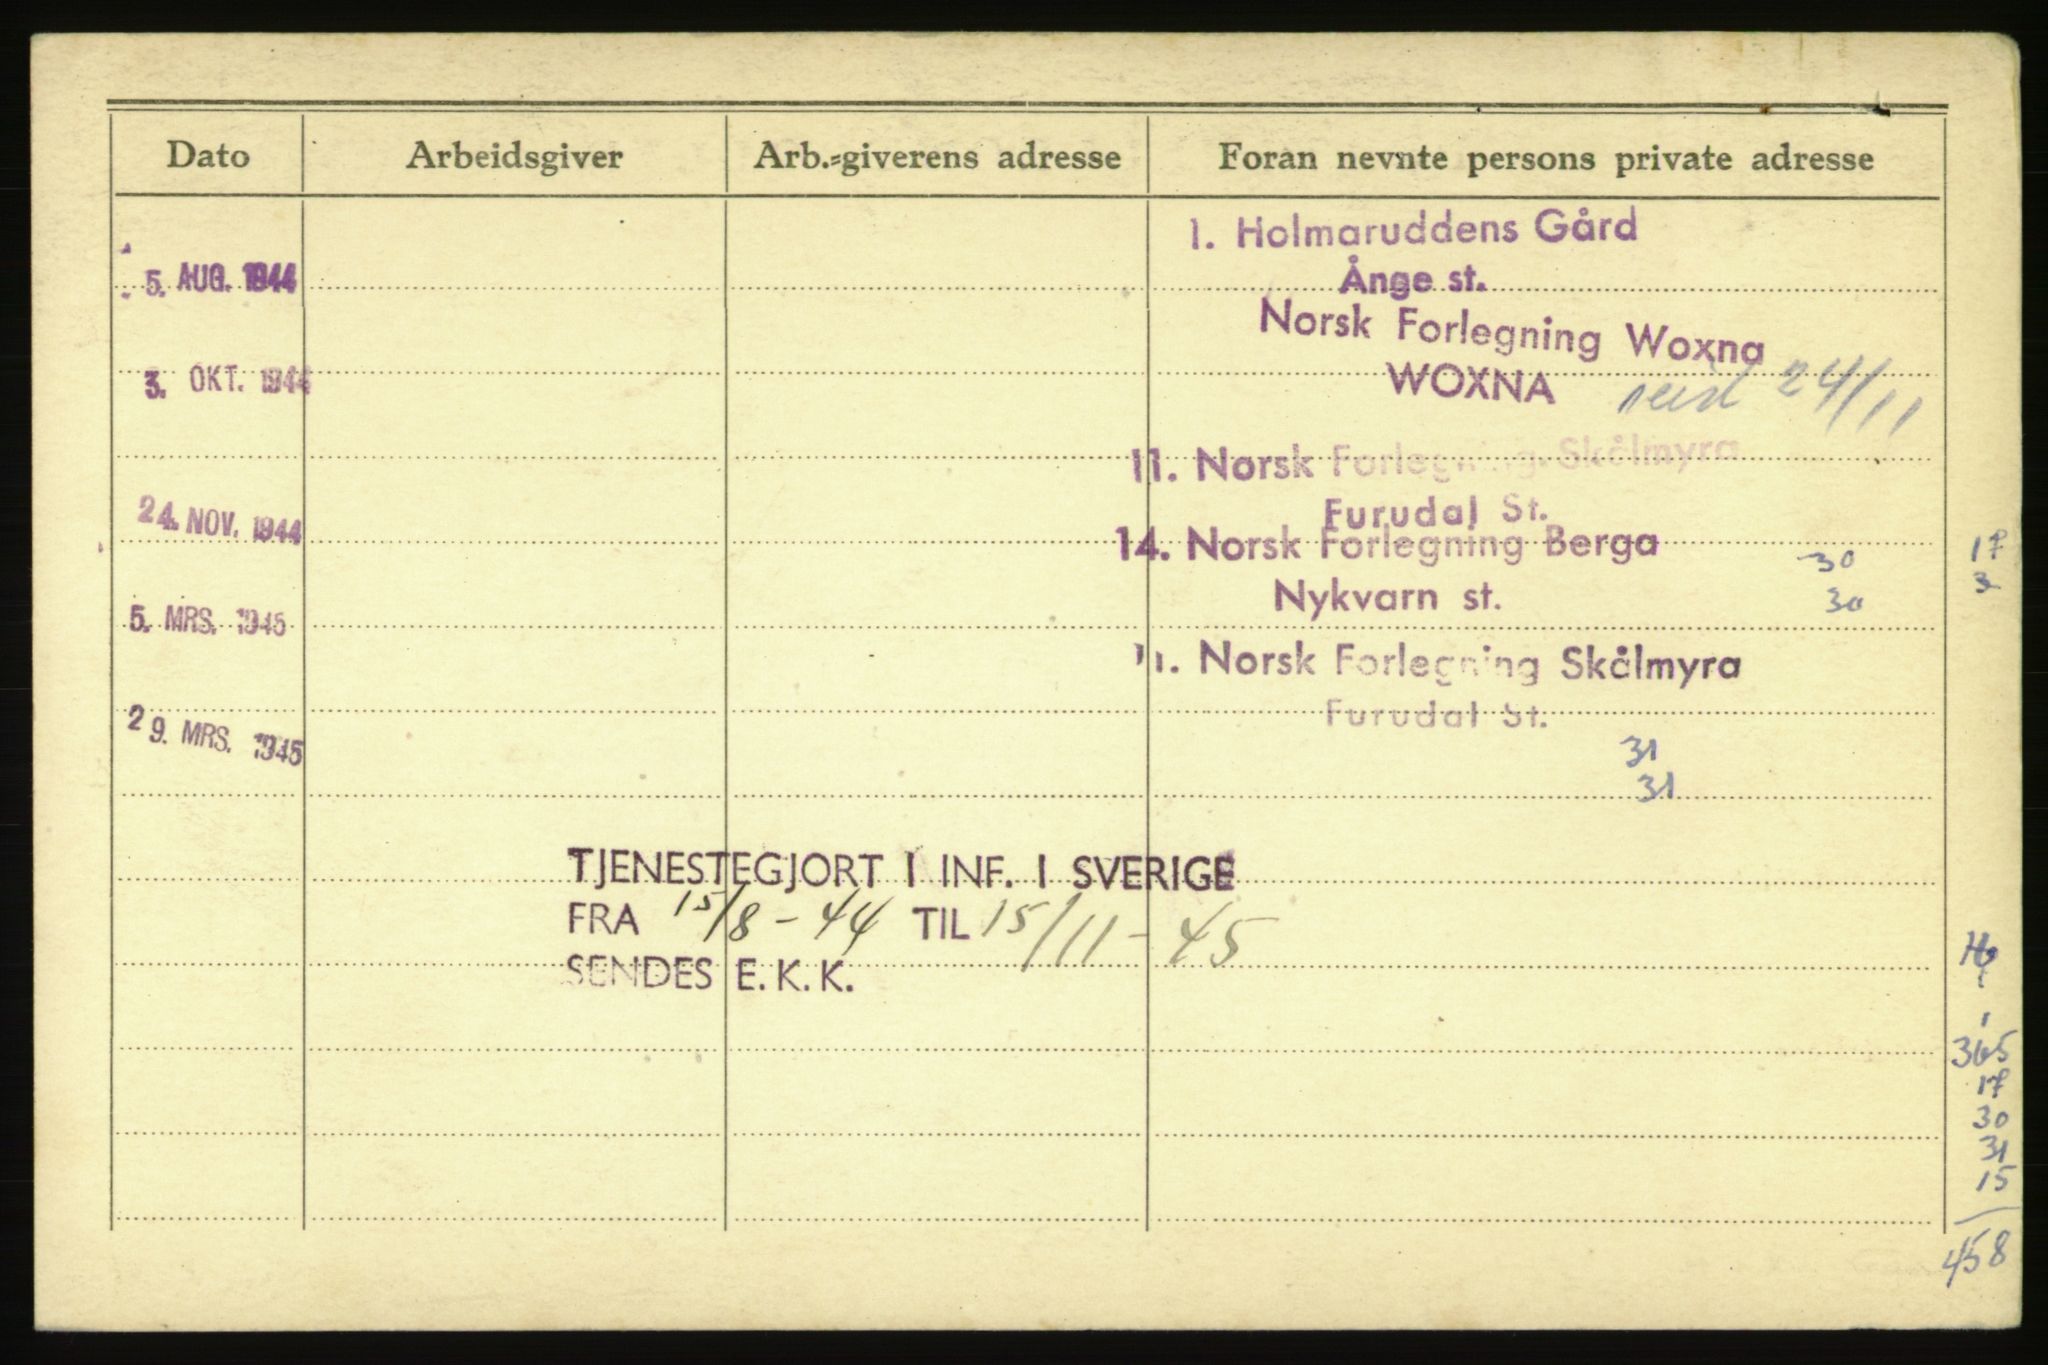 Dato Arbeidsgiver Arb.-giverens adresse Foran nevnte persons private adresse
1. Holmaruddens Gård
5. AUG. 1944 Ånge st.
Norsk Forlegning Woxna
3. OKT. 1944 WOXNA reist 24/11
11. Norsk Forlegning Skålmyra
24. NOV. 1944 Furudal St.
14. Norsk Forlegning Berga 30 17
5. MRS. 1945 Nykvarn st. 30 3
11. Norsk Forlegning Skålmyra
29. MRS. 1945 Furudal St.
31
31
TJENESTEGJORT I INF. I SVERIGE
FRA 15/8-44 TIL 15/11-45
SENDES E.K.K.
1
365
17
30
31
15
458